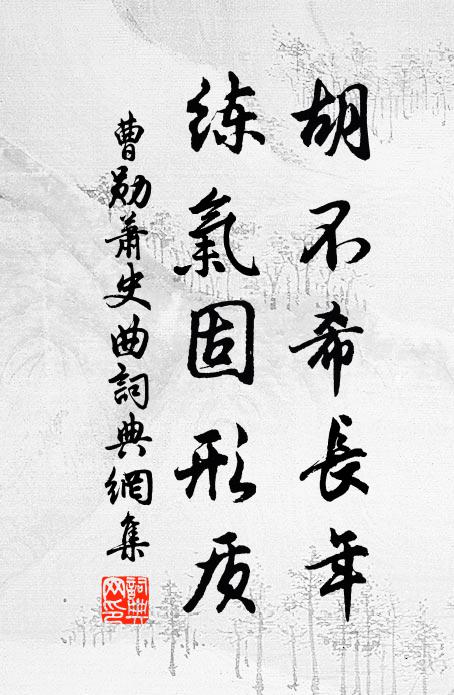 胡不希長年
练氣固形质
曹勋蕭史曲詞典網集
詞典网印